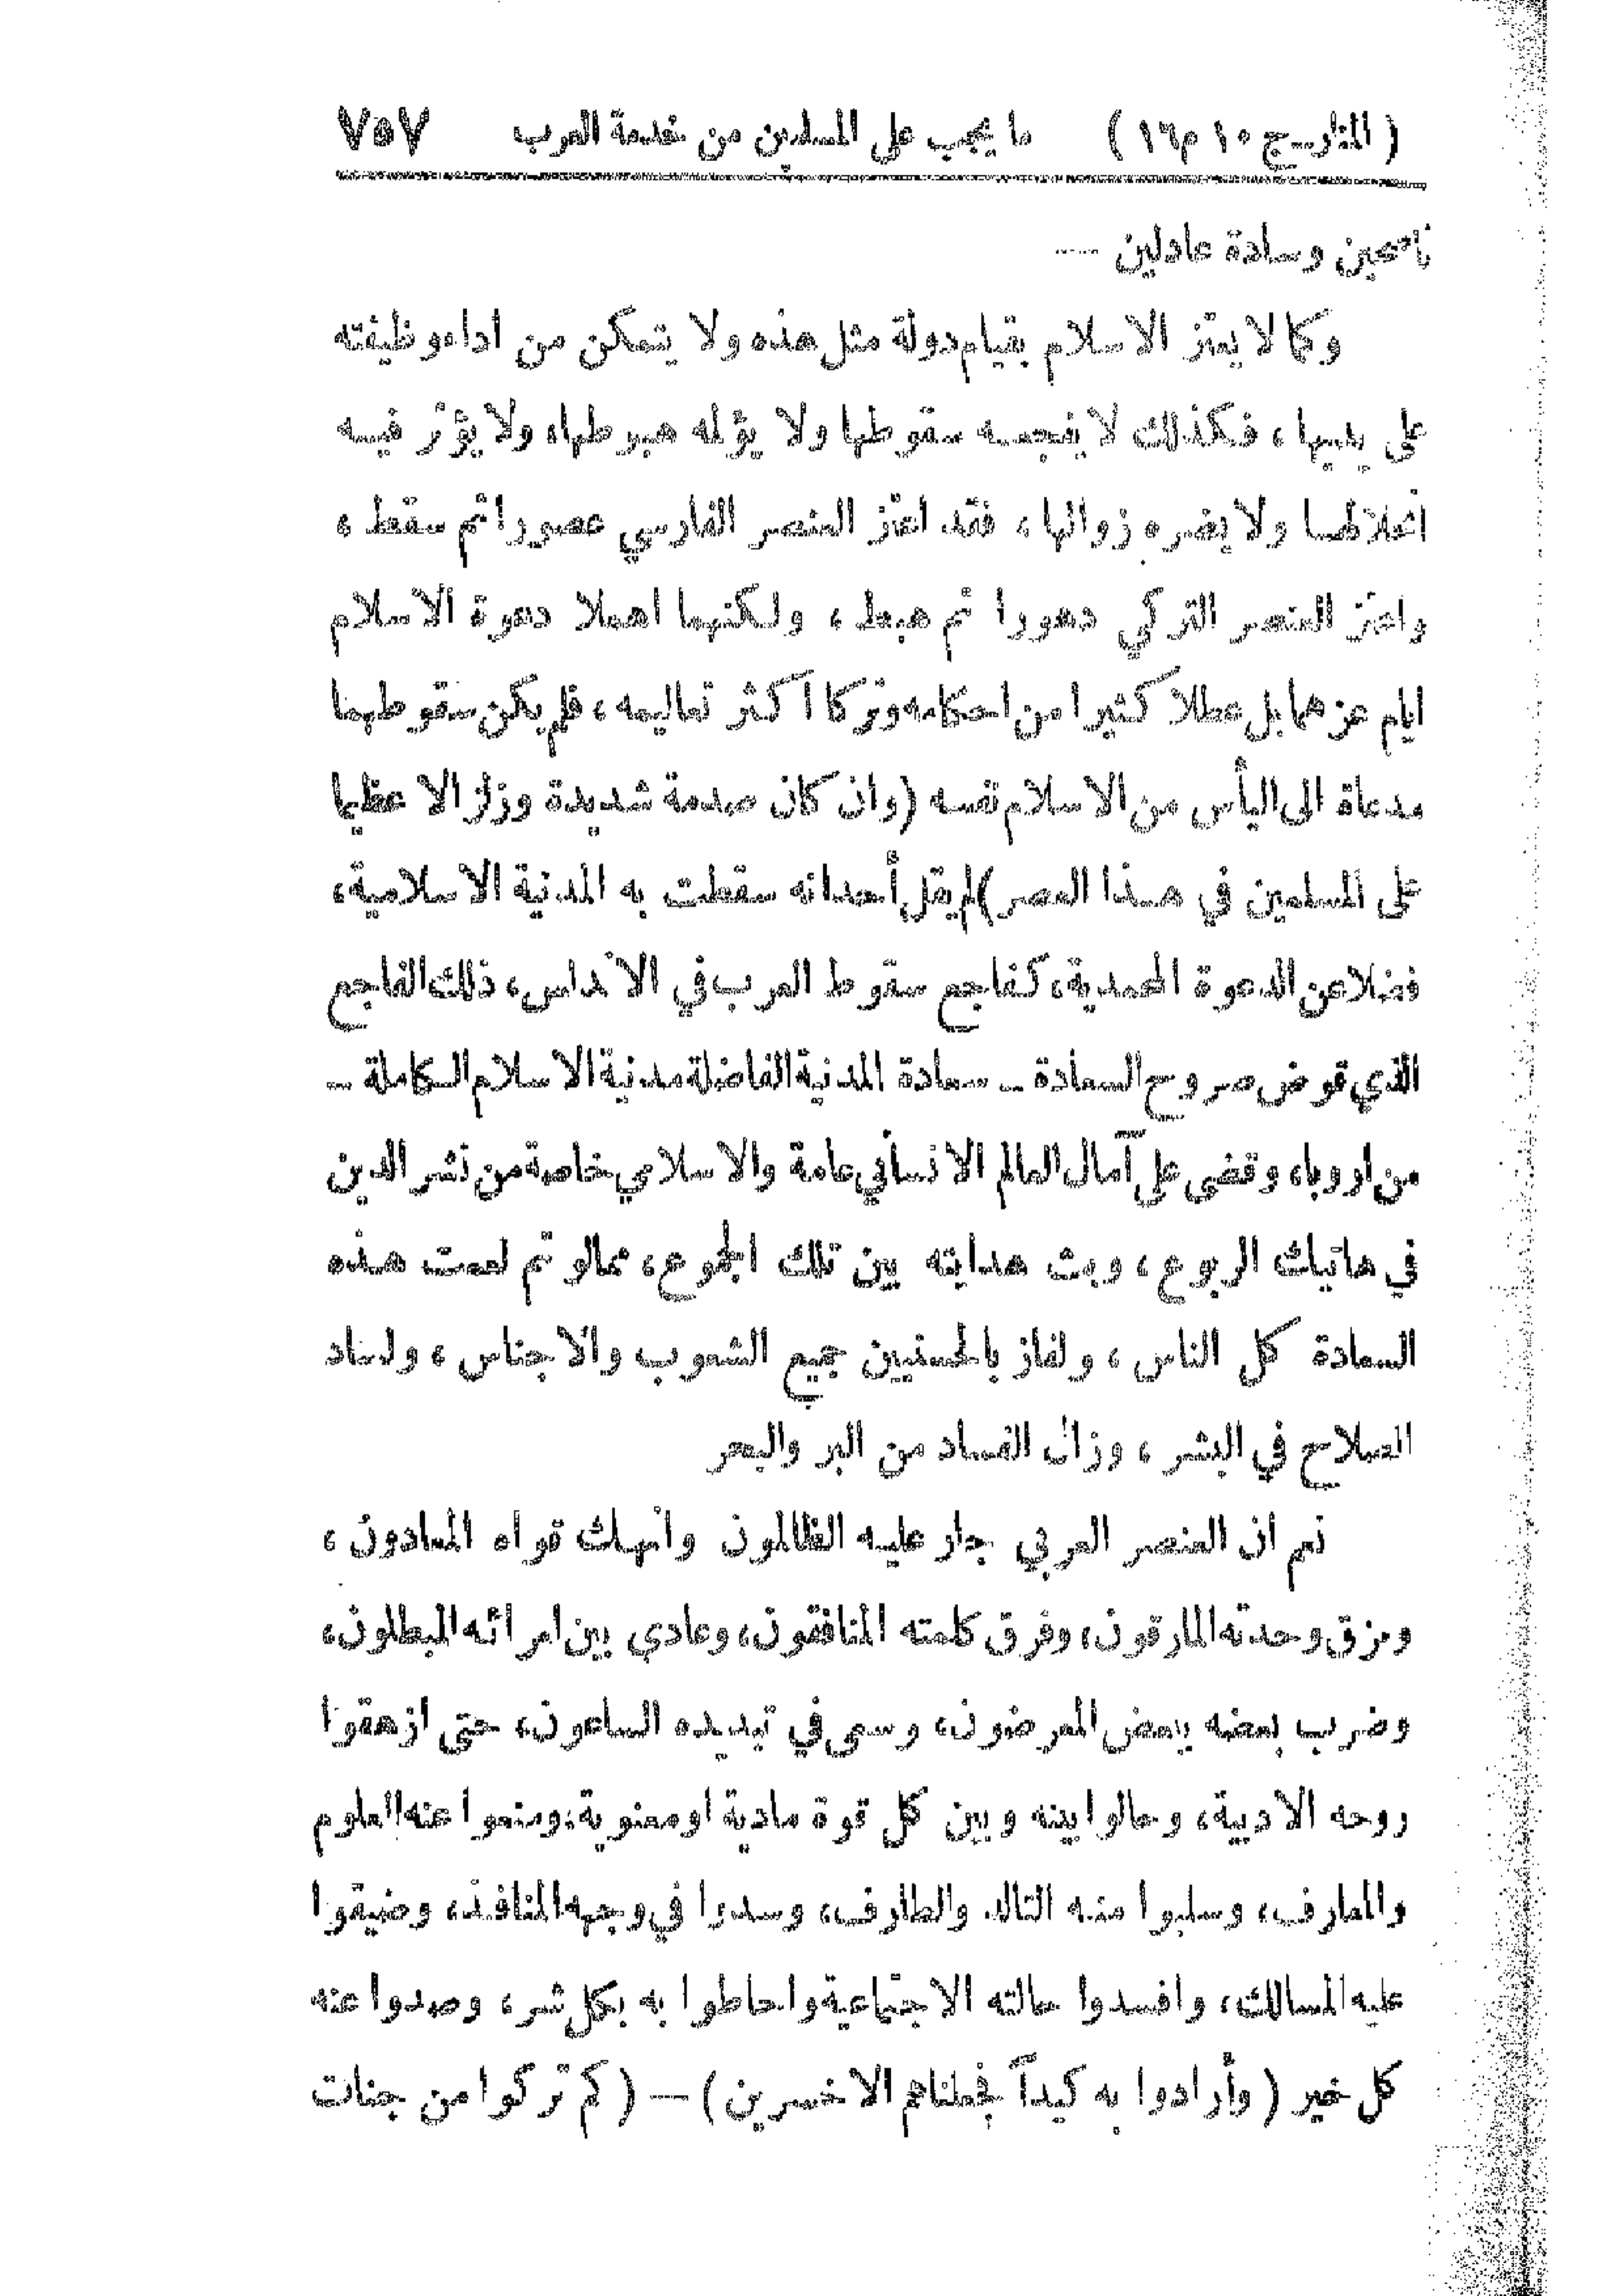 ( المنار ــ ج ١٠ م ١٦ ) ما يجب على المسلمين من خدمة العرب ٧٥٧
ناصحين وسادة عادلين ....
وكما لا يعتز الاسلام بقيام دولة مثل هذه ولا يتمكن من أداء وظيفته
على يديها ، فكذلك لا يفجعه سقوطها ولا يؤلمه هبوطها، ولا يؤثر فيه
انحلالها ولا يضره زوالها ، فقد اعتز العنصر الفارسي عصورا ثم سقط ،
واعتز العنصر التركي دهورا ثم هبط ، ولكنهما اهملا دعوة الاسلام
ايام عزهما بل عطلا كثيرا من احكامه وتركا أكثر تعاليمه ، فلم يكن سقوطهما
مدعاة الى اليأس من الاسلام نفسه (وان كان صدمة شديدة وزلزالا عظيما
على المسلمين في هذا العصر) لم يقل أحد انه سقطت به المدنية الاسلامية ،
فضلا عن الدعوة المحمدية ، كفاجع سقوط العرب في الاندلس، ذلك الفاجع
الذي قوض صروح السعادة ــ سعادة المدنية الفاضلة مدنية الاسلام الكاملة ــ
من اروبا، وقضى على آمال العالم الانساني عامة والاسلامي خاصة من نشر الدين
في هاتيك الربوع ، وبث هدايته بين تلك الجموع، مما لو تم لعمت هذه
السعادة كل الناس ، ولفاز بالحسنيين جميع الشعوب والاجناس ، ولساد
الصلاح في البشر ، وزال الفساد من البر والبحر
نعم ان العنصر العربي جار عليه الظالمون وانهك قواه المعادون ،
ومزق وحدته المارقون، وفرق كلمته المنافقون، وعادى بين امرائه المبطلون،
وضرب بعضه ببعض المعرضون، وسعى في تبديده الساعون، حتى ازهقوا
روحه الادبية، وحالوا بينه وبين كل قوة مادية او معنوية، ومنعوا عنه العلوم
والمعارف، وسلبوا منه التالد والطارف، وسدوا في وجهه المنافذ، وضيقوا
عليه المسالك، وافسدوا حالته الاجتماعية واحاطوا به بكل شر، وصدوا عنه
كل خير ( وأرادوا به كيداً فجعلناهم الاخسرين ) — ( كم تركوا من جنات